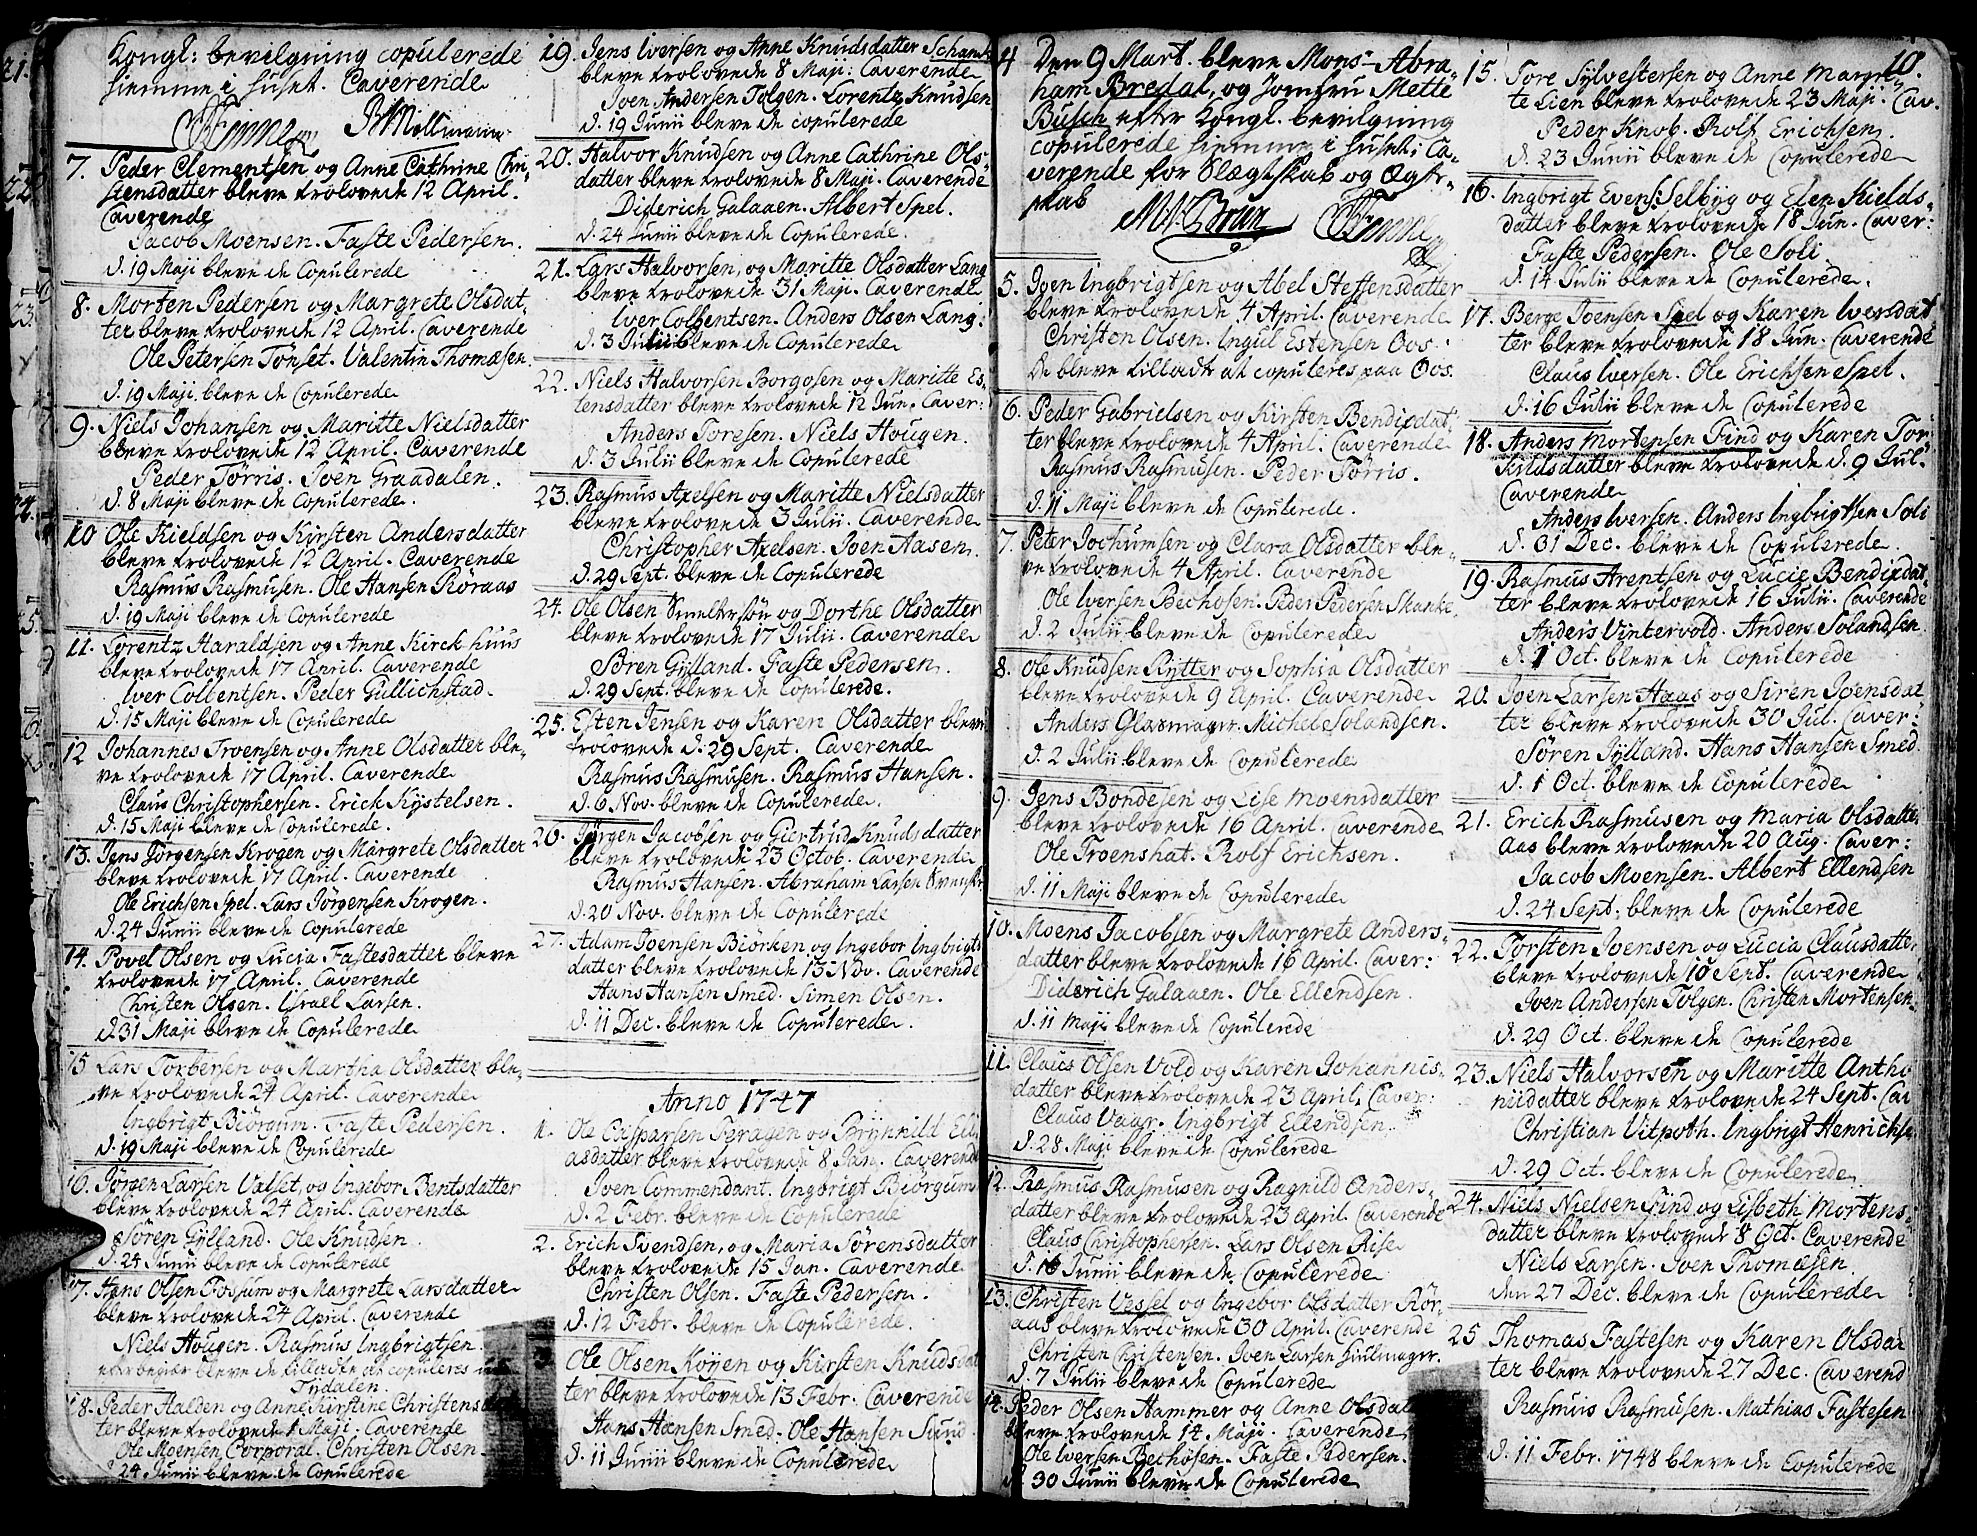 Kongl: bevilgning copulerede
hiemme i huset. Caverende
7. Peder Clementsen og Anne Cathrine Chri-
stensdatter bleve trolovede 12 April.
Caverende
Jacob Moensen. Faste Pedersen.
d. 19 Maji bleve de Copulerede
8. Morten Pedersen og Margrete Olsdat-
ter bleve trolovede 12 April. Caverende
Ole Petersen Tønset. Valentin Thomæsen.
d. 19 Maji bleve de Copulerede
9. Niels Johansen og Maritte Nielsdatter
bleve trolovede 12 April. Caverende
Peder Tørris. Joen Graadalen.
d. 8 Maji bleve de Copulerede.
10 Ole Kieldsen og Kirsten Andersdatter
bleve trolovede 12 April. Caverende
Rasmus Rasmusen. Ole Hansen Röraas
d. 19 Maji bleve de Copulerede
11. Lorentz Haraldsen og Anne Kirck huus
bleve trolovede 17 April. Caverende
Iver Colbentsen. Peder Gullichstad.
d. 15 Maji bleve de Copulerede
12 Johannes Troensen og Anne Olsdatter ble-
ve trolovede 17 April. Caverende
Claus Christophersen. Erick Kystelsen.
d. 15 Maji bleve de Copulerede.
13. Jens Jörgensen Krogen og Margrete Olsdatter
bleve trolovede 17 April. Caverende
Ole Erichsen Spel. Lars Jörgensen Krogen.
d. 24 Junii bleve de Copulerede
14. Povel Olsen og Lucia Fastesdatter bleve
trolovede 17 April. Caverende
Christen Olsen. Israel Larsen.
d. 31 Maji bleve de Copulerede
15 Lars Torbersen og Martha Olsdatter ble-
ve trolovede 24 April. Caverende
Ingbrigt Biörgum. Faste Pedersen.
d. 19 Maji bleve de Copulerede
16. Jörgen Larsen Valset, og Ingebor Bentsdatter
bleve trolovede 24 April. Caverende
Sören Gylland. Ole Knudsen.
d. 24 Junii bleve de Copulerede
17. Hans Olsen Fossum og Margrete Larsdatter
bleve trolovede 24 April. Caverende
Niels Hougen. Rasmus Ingbrigtsen.
efter begiær bleve de tilladte at copuleres
Tydalen.
18. Peder Halden og Anne Kirstine Christens
ter bleve trolovede 1 Maji. Caverende
Ole Moensen Corporal. Christen Olsen.
d. 24 Junii bleve de Copulerede
19. Jens Iversen og Anne Knudsdatter Schanc
bleve trolovede 8 Maji. Caverende
Joen Andersen Tolgen. Lorentz Knudsen
d. 19 Junii bleve de copulerede
20. Halvor Knudsen og Anne Cathrine Ols-
datter bleve trolovede 8 Maji. Caverende
Diderich Galaaen. Albert Spel.
d. 24 Junii bleve de Copulerede.
21. Lars Halvorsen, og Maritte Olsdatter Lang
bleve trolovede 31 Maji. Caverende
Iver Colbentsen. Anders Olsen Lang:
d. 3 Julii bleve de Copulerede
22. Niels Halvorsen Borgosen og Maritte Es-
tensdatter bleve trolovede 12 Jun. Caver:
Anders Toresen. Niels Hougen.
d. 3 Julii bleve de Copulerede
23. Rasmus Axelsen og Maritte Nielsdatter
bleve trolovede 3 Julii. Caverende
Christopher Axelsen. Joen Aasen.
d. 29 Sept. bleve de Copulerede
24. Ole Olsen Smeltersön og Dorthe Olsdatter
bleve trolovede 17 Julii. Caverende
Sören Gylland. Faste Pedersen.
d. 29 Sept. bleve de Copulerede.
25. Esten Jensen og Karen Olsdatter bleve
trolovede d. 29 Sept. Caverende
Rasmus Rasmusen. Rasmus Hansen.
d. 6 Nov. bleve de Copulerede.
26. Jörgen Jacobsen og Giertrud Knudsdatter
bleve trolovede 23 Octob. Caverende
Rasmus Hansen. Abraham Larsen Svensk.
d. 20 Nov. bleve de Copulerede
27. Adam Joensen Biörken og Ingebor Ingbrigts
datter bleve trolovede 15 Nov. Caverende
Hans Hansen Smed. Simen Olsen.
d. 11 Dec. bleve de Copulerede.
Anno 1747
1. Ole Casparsen Feragen og Brynnild Eli-
asdatter bleve trolovede 8 Jan. Caverende
Joen Commendant. Ingbrigt Biorgum
d. 2 Febr. bleve de Copulerade
2. Erich Svendsen, og Maria Sörensdatter
bleve trolovede 15 Jan. Caverende
Christen Olsen. Faste Pedersen.
d. 12 Febr. bleve de Copulerede
3 Ole Olsen Koyen og Kirsten Knudsdat
ter bleve trolovede 13 Febr. Caverende
Hans Hansen Smed. Ole Hansen Sund
d. 11 Junii bleve de Copulerede
4 Den 9 Mart. bleve Mons- Abra-
ham Bredal, og Jomfru Mette
Busch efter Kongl. bevilgning
copulerede hiemme i huset; Ca-
verende for Slægtskab og Ægte-
skab
M N Brun
5. Joen Ingbrigtsen og Abel Steffensdatter
bleve trolovede 4 April. Caverende
Christen Olsen. Ingul Estensen Oos.
De bleve tilladt at copuleres paa Oos.
6. Peder Gabrielsen og Kirsten Bendixdat-
ter bleve trolovede 4 April. Caverende
Rasmus Rasmusen. Peder Tørris.
d. 11 Maji bleve de Copulerede.
7. Peter Jochumsen og Clara Olsdatter ble-
ve trolovede 4 April. Caverende
Ole Iversen Bechosen. Peder Pedersen Skanke.
d. 2 Julii bleve de Copulerede
8. Ole Knudsen Rytter og Sophia Olsdatter
bleve trolovede 9 April. Caverende
Anders Glasmager. Michel Solandsen.
d. 2 Julii bleve de Copulerede
9. Jens Bondesen og Lise Moensdatter
bleve trolovede 16 April. Caverende
Ole Troenshat. Rolf Erichsen.
d. 11 Maji bleve de Copulerede
10. Moens Jacobsen og Margrete Anders-
datter bleve trolovede 16 April. Caver:
Diderich Galaaen. Ole Ellendsen.
d. 11 Maji bleve de Copulerede
11. Claus Olsen Vold og Karen Johannis-
datter bleve trolovede 23 April. Caver:
Claus Vaar. Ingbrigt Ellendsen.
d. 28 Maji bleve de Copulerede
12. Rasmus Rasmusen og Ragnild Anders-
datter bleve trolovede 23 April. Caverende
Claus Christophersen. Lars Olsen Rise
d. 16 Junii bleve de Copulerede
13. Christen Vessel og Ingebor Olsdatter Rör-
aas bleve trolovede 30 April. Caverende
Christen Christensen. Joen Larsen Hiulmager.
d. 7 Julii bleve de Copulerede
14. Peder Olsen Hammer og Anne Olsda
bleve trolovede 14 Maji. Caverende
Ole Iversen Bechosen. Faste Pedersen.
d. 30 Junii bleve de Copulerede
10.
15. Tore Sylvestersen og Anne Margre-
te Lien bleve trolovede 23 Maji. Cav.
Peder Knob. Rolf Erichsen.
d. 23 Junii bleve de Copulerede
16. Ingbrigt Evens: Selbyg og Elen Kields-
datter bleve trolovede 18 Jun. Caver:
Faste Pedersen. Ole Soli
d. 14 Julii bleve de Copulerede.
17. Berge Joensen Spel og Karen Iversdat
ter bleve trolovede 18 Jun. Caverende
Claus Iversen. Ole Erichsen Spel.
d. 16 Julii bleve de Copulerede
18. Anders Mortensen Find og Karen Tor-
kildsdatter bleve trolovede d. 9 Jul.
Caverende
Anders Iversen. Anders Ingbrigtsen Soli
d. 31 Dec. bleve de Copulerede.
19. Rasmus Arentsen og Lucie Bendixdat-
ter bleve trolovede 16 Julii. Caverende
Anders Vintervold. Anders Solandsen
d. 1 Oct. bleve de Copulerede
20. Joen Larsen Haas og Siren Joensdat
ter bleve trolovede 30 Jul. Caver:
Sören Jylland. Hans Hansen Smed
d. 1 Oct. bleve de Copulerede
21. Erich Rasmusen og Maria Olsdatte
Aas bleve trolovede 20 Aug. Caver:
Jacob Moensen. Albert Ellendsen
d. 24 Sept: bleve de Copulerede
22. Torsten Joensen og Lucia Clausdatte
bleve trolovede 10 Sept. Caverende
Joen Andersen Tolgen. Christen Mortensen.
d. 29 Oct. bleve de Copulerede
23. Niels Halvorsen og Maritte Antho
niidatter bleve trolovede 24 Sept. Cav
Christian Vitpoth. Ingbrigt Henrichse
d. 29 Oct. bleve de Copulerede
24. Niels Nielsen Find og Lisbeth Mortens-
datter bleve trolovede 8 Oct. Caverende
Niels Larsen. Joen Thomæsen.
den 27 Dec. bleve de Copulerede
25 Thomas Fastesen og Karen Olsda
ter bleve trolovede 27 Dec. Caverend
Rasmus Rasmusen. Mathias Fastesen
d. 11 Febr. 1748 bleve de Copulerede